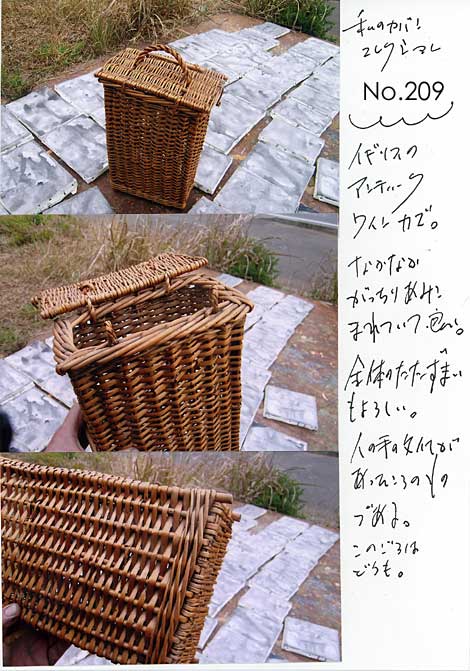 私のカバン
コレクション
No.209
イギリスの
アンティーク
ワインカゴ。
なかなか
がっちりあみこ
まれていて、良い。
全体のたたずまい
もよろしい。
人の手の文化が
あったころのもの
である。
このごろは
どうも。